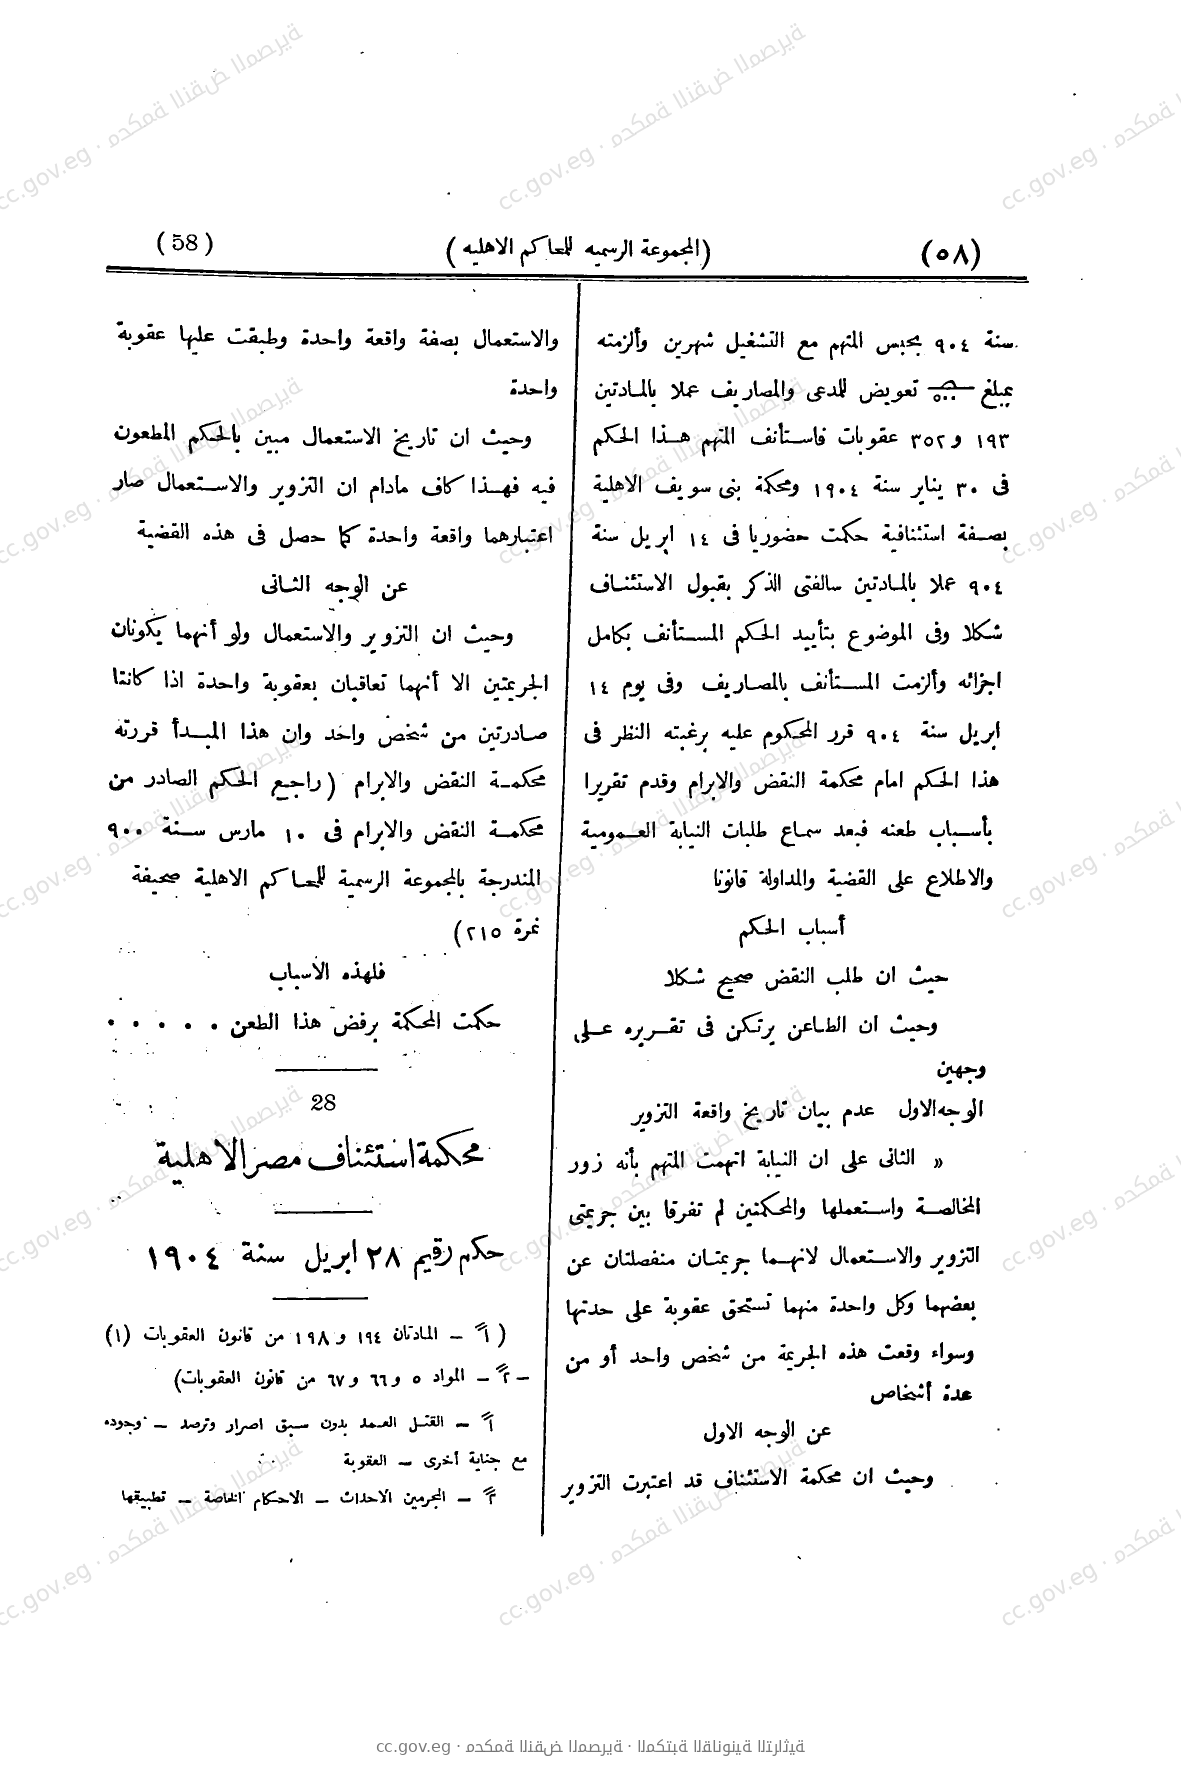 (٥٨) (المجموعة الرسميه للمحاكم الاهليه) (58)
سنة ٩٠٤ بحبس المتهم مع التشغيل شهرين وألزمته
بمبلغ تعويض للمدعى والمصاريف عملا بالمادتين
١٩٣ و ٣٥٢ عقوبات فاستأنف المتهم هذا الحكم
فى ٣٠ يناير سنة ١٩٠٤ ومحكمة بنى سويف الاهلية
بصفة استئنافية حكمت حضوريا فى ١٤ ابريل سنة
٩٠٤ عملا بالمادتين سالفتى الذكر بقبول الاستئناف
شكلا وفى الموضوع بتأييد الحكم المستأنف بكامل
اجزائه وألزمت المستأنف بالمصاريف وفى يوم ١٤
ابريل سنة ٩٠٤ قرر المحكوم عليه برغبته النظر فى
هذا الحكم امام محكمة النقض والابرام وقدم تقريرا
بأسباب طعنه فبعد سماع طلبات النيابة العمومية
والاطلاع على القضية والمداولة قانونا
أسباب الحكم
حيث ان طلب النقض صحيح شكلا
وحيث ان الطاعن يرتكن فى تقريره على
وجهين
الوجه الاول عدم بيان تاريخ واقعة التزوير
« الثانى على ان النيابة اتهمت المتهم بأنه زور
المخالصة واستعملها والمحكمتين لم تفرقا بين جريمتى
التزوير والاستعمال لانهما جريمتان منفصلتان عن
بعضهما وكل واحدة منهما تستحق عقوبة على حدتها
وسواء وقعت هذه الجريمة من شخص واحد أو من
عدة أشخاص
عن الوجه الاول
وحيث ان محكمة الاستئناف قد اعتبرت التزوير
والاستعمال بصفة واقعة واحدة وطبقت عليها عقوبة
واحدة
وحيث ان تاريخ الاستعمال مبين بالحكم المطعون
فيه فهذا كاف مادام ان التزوير والاستعمال صار
اعتبارهما واقعة واحدة كما حصل فى هذه القضية
عن الوجه الثانى
وحيث ان التزوير والاستعمال ولو أنهما يكونان
الجريمتين الا أنهما تعاقبان بعقوبة واحدة اذا كانتا
صادرتين من شخص واحد وان هذا المبدأ قررته
محكمة النقض والابرام (راجع الحكم الصادر من
محكمة النقض والابرام فى ١٠ مارس سنة ٩٠٠
المندرجة بالمجموعة الرسمية للمحاكم الاهلية صحيفة
نمرة ٢١٥)
فلهذه الاسباب
حكمت المحكمة برفض هذا الطعن . . . . .
28
محكمة استئناف مصر الاهلية
حكم رقيم ٢٨ ابريل سنة ١٩٠٤
(أً – المادتان ١٩٤ و ١٩٨ من قانون العقوبات (١)
– ٢ً – المواد ٥ و ٦٦ و ٦٧ من قانون العقوبات)
أً – القتل العمد بدون سبق اصرار وترصد – وجوده
مع جناية أخرى – العقوبة
٢ً – المجرمين الاحداث – الاحكام الخاصة – تطبيقها
cc.gov.eg · محكمة النقض المصرية · المكتبة القانونية التراثية